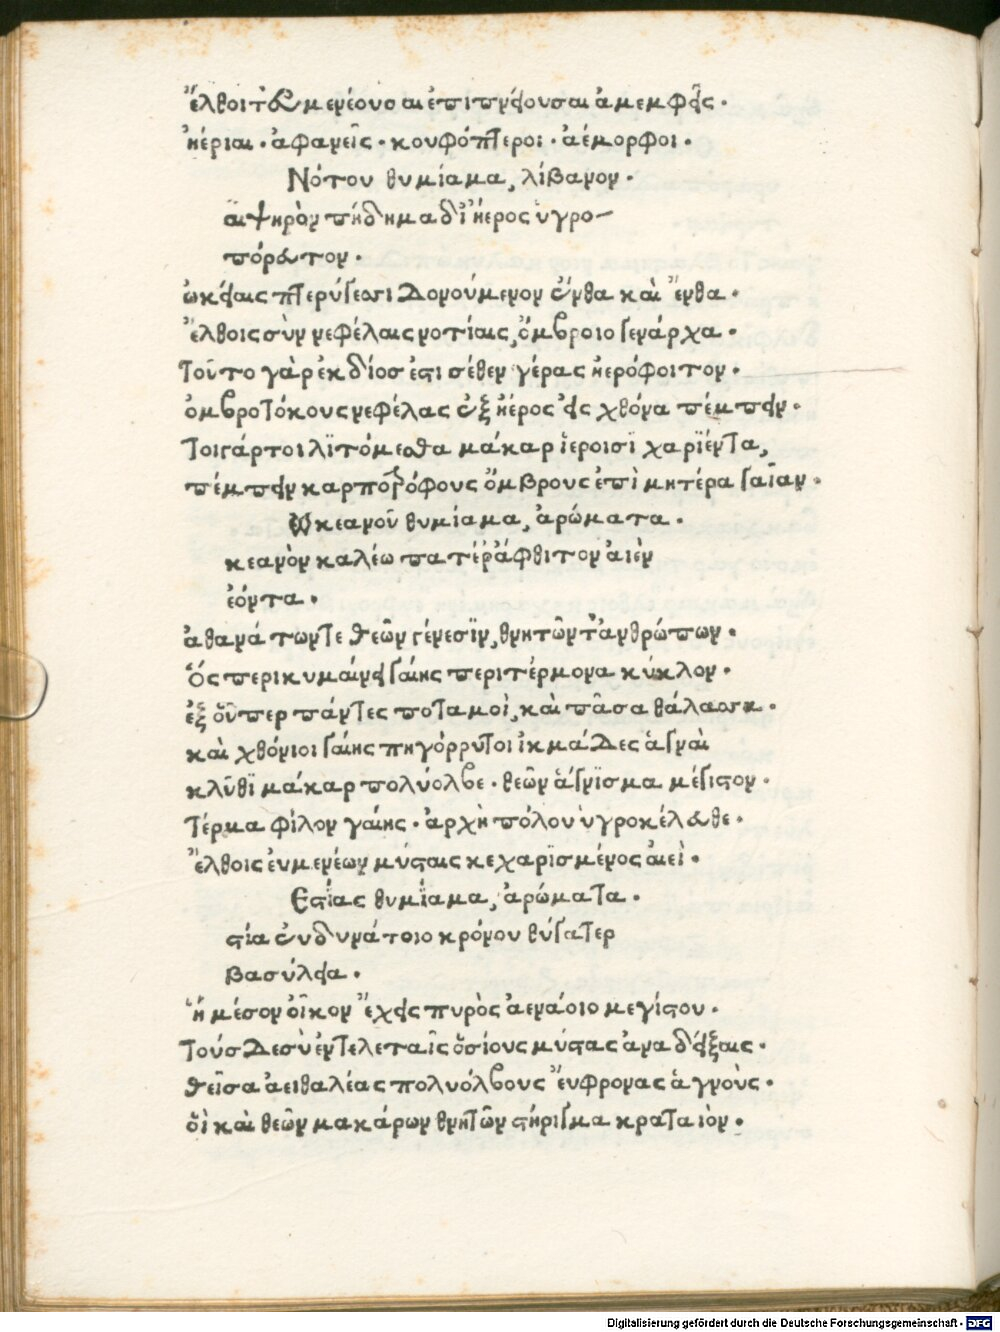 ἔλθοιτ' εὐμενέουσαι ἐπιπνείουσαι ἀμεμφεῖς.
ἠέριαι. ἀφανεῖς. κουφόπτεροι. ἀέμορφοι.
Νότου θυμίαμα, λίβανον.
αιψηρὸν πήδημα δι' ἠέρος ὑγρο-
πόρευτον.
ὠκείαις πτερύγεσσι δονούμενον ἔνθα καὶ ἔνθα.
ἔλθοις σὺν νεφέλαις νοτίαις, ὄμβροιο γενάρχα.
τοῦτο γὰρ ἐκ διόσ ἐστι σέθεν γέρας ἠερόφοιτον.
ὀμβροτόκους νεφέλας ἐξ ἠέρος εἰς χθόνα πέμπειν.
τοιγάρτοι λϊτόμεσθα μάκαρ ἱεροισϊ χαρϊέντα,
πέμπειν καρποτρόφους ὄμβρους ἐπὶ μητέρα γαῖαν.
Ὠκεανοῦ θυμίαμα, ἀρώματα.
κεανὸν καλέω πατέρ' ἄφθιτον αἰὲν
ἐόντα.
ἀθανάτων τε θεῶν γένεσϊν, θνητῶν τ' ἀνθρώπων.
ὅς περικυμαίνει γαίης περιτέρμονα κύκλον.
ἐξ οὗπερ πάντες ποταμοὶ, καὶ πᾶσα θάλασσα.
καὶ χθόνιοι γαίης πηγόρρυτοι ἰκμάδες ἁγναὶ
κλῦθϊ μάκαρ πολύολβε. θεῶν ἅγνϊσμα μέγιστον.
τέρμα φίλον γαίης. ἀρχὴ πόλου ὑγροκέλευθε.
ἔλθοις εὐμενέων μύσταις κεχαρϊσμένος ἀιεὶ.
Εστίας θυμίαμα, ἀρώματα.
στία εὐδυνάτοιο κρόνου θύγατερ
βασύλεια.
ἣ μέσον οἶκον ἔχεις πυρὸς ἀενάοιο μεγίστου.
τούσδε σὺ ἐν τελεταῖς ὁσίους μύστας ἀναδείξαις.
θεῖσα ἀειθαλέας πολυόλβους ἔυφρονας ἁγνοὺς.
ὃὶ καὶ θεῶν μακάρων θνητῶν στήριγμα κραταιόν.
Digitalisierung gefördert durch die Deutsche Forschungsgemeinschaft - DFG